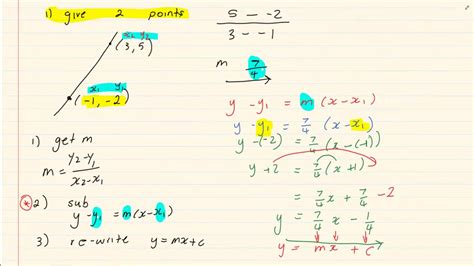 1) give 2 points
x₂ y₂
(3, 5)
x₁ y₁
(-1, -2)
1) get m
m = y₂-y₁ / x₂-x₁
2) sub
y-y₁ = m(x-x₁)
3) re-write y=mx+c
5 - -2 / 3 - -1
m 7/4
y - y₁ = m (x - x₁)
y - y₁ = 7/4 (x - x₁)
y - (-2) = 7/4 (x - (-1))
y + 2 = 7/4 (x + 1)
= 7/4 x + 7/4 - 2
y = 7/4 x - 1/4
y = mx + c